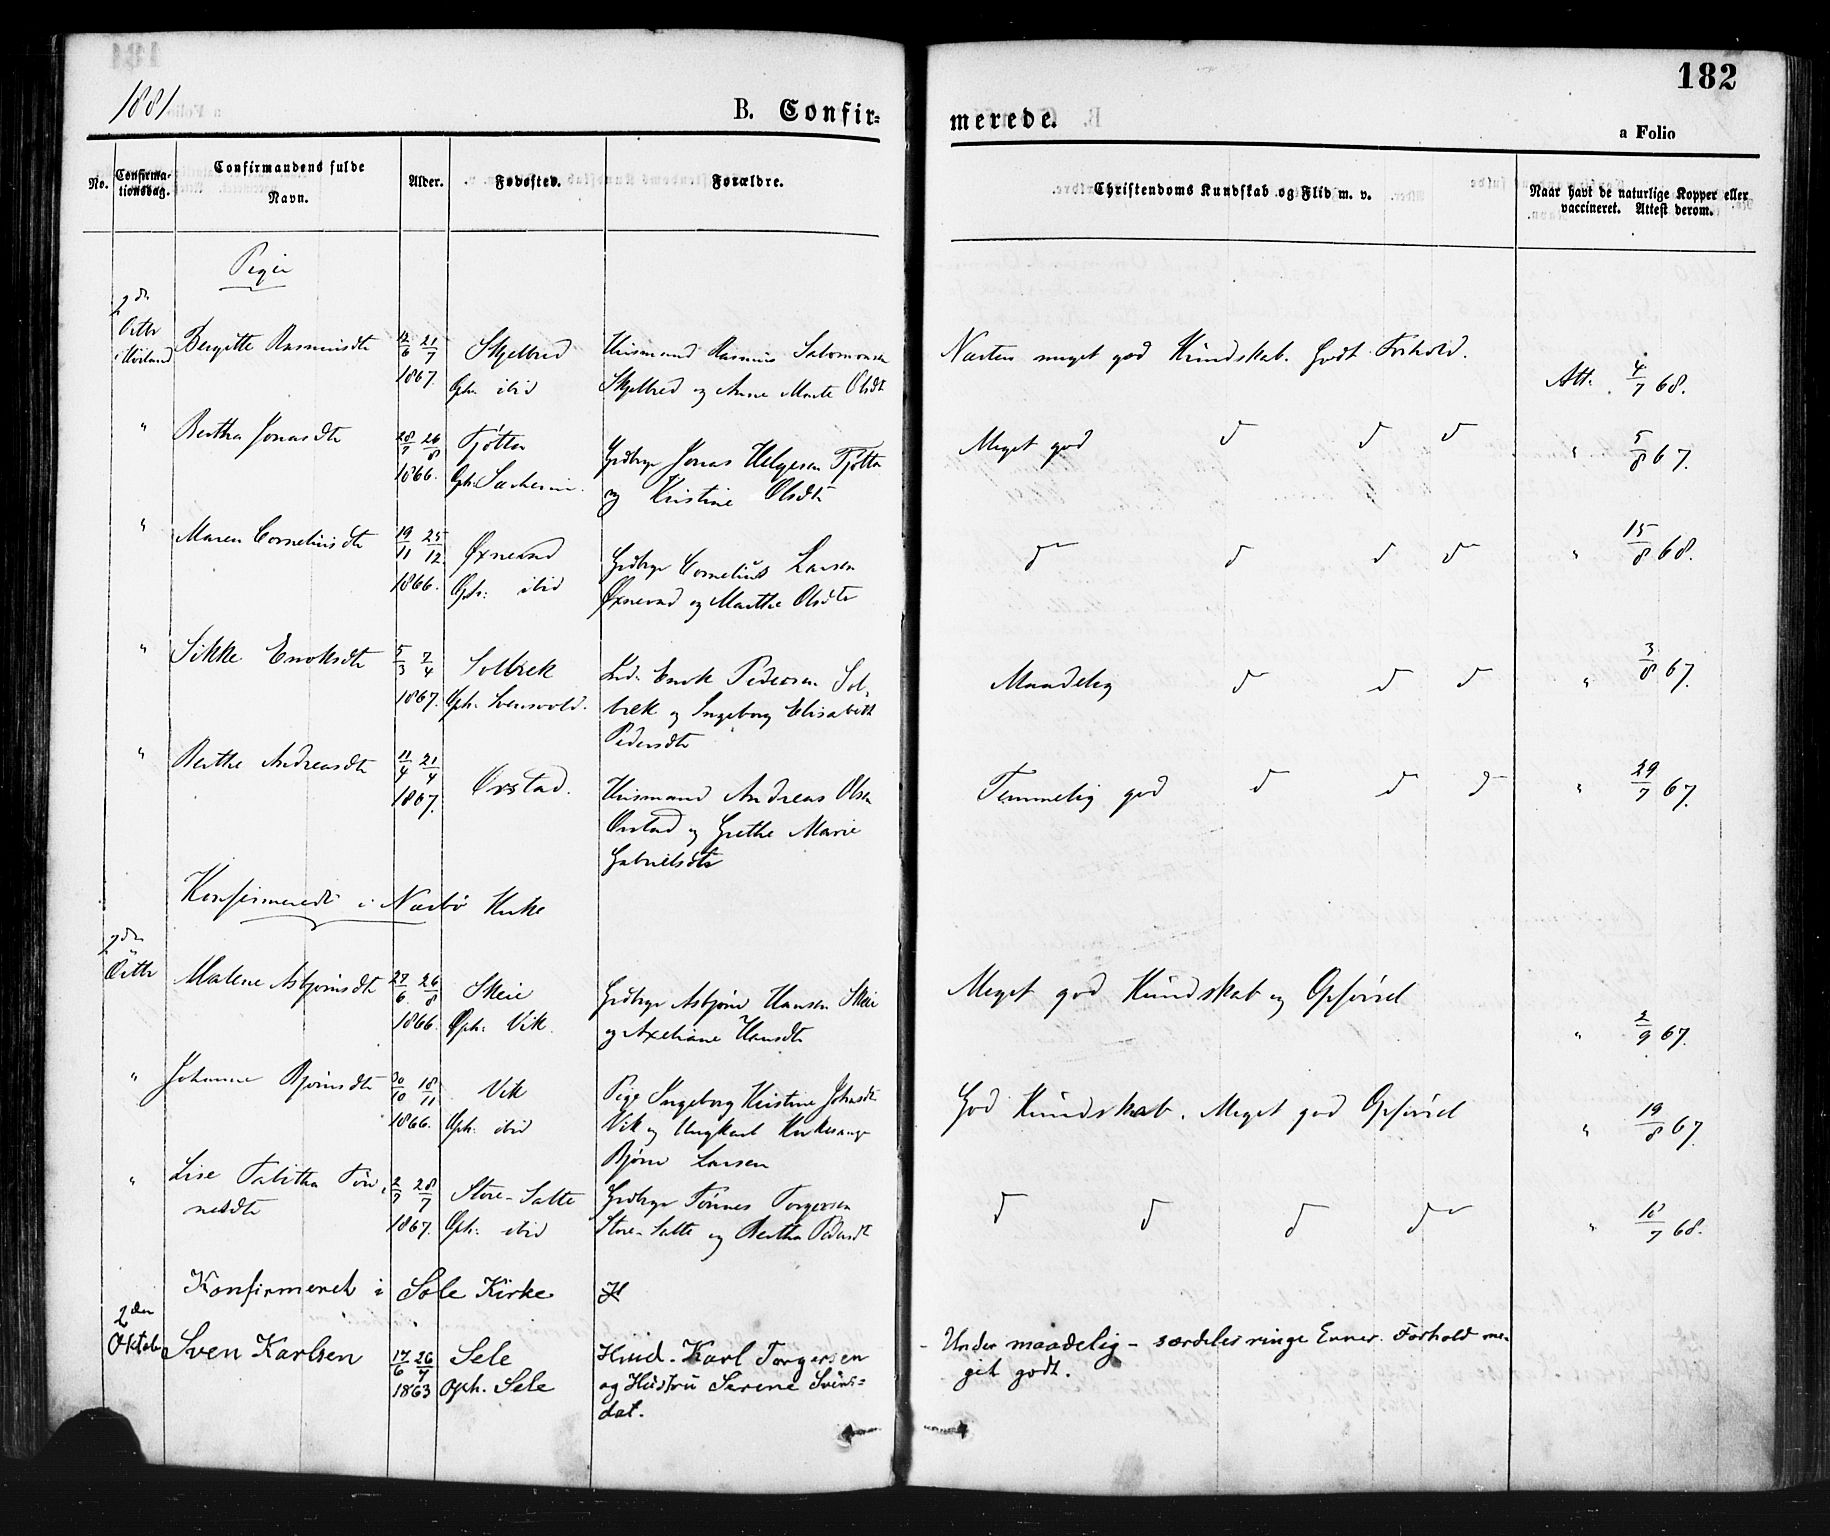 1881
B. Confir=
merede.
182
a Folio
No.
Confirma-
tionsdag.
Confirmandens fulde
Navn.
Alder.
Fødested.
Forældre.
Christendoms Kundskab og Flid m. v.
Naar havt de naturlige Kopper eller
vaccineret. Attest derom.
Piger
2den Octbr
Bergitte Rasmusdtr
12/6 21/7
1867.
Skjelbred
Oph. ibid
Huusmand Rasmus Salomonsen
Skjelbred og Anne Marte Olsdt
Næsten meget god Kundskab. Godt Forhold.
Att. 4/7 68.
" Bertha Jonasdtr
28/7 26/8
1866.
Tjøtta
Oph.
Grdbrgr Jonas Helgesen Tjøtta
og Kristine Olsdtr
Meget god d d d
" 5/8 67.
" Maren Corneliusdtr
19/11 25/12
1866.
Øxnevad
Oph: ibid
Grdbrgr Cornelius Larsen
Øxnevad og Marthe Olsdtr
d d d d
" 15/8 68.
" Sikke Enoksdtr
5/3 7/4
1867.
Solbrek
Oph.
Enok Pedersen Sol-
brek og Ingeborg Elisabeth
Pedersdtr
Maadelig d d d
" 3/8 67.
" Berthe Andreasdtr
11/4 21/4
1867.
Orstad.
Huusmand Andreas Olsen
Orstad og Grethe Marie
Gabrielsdtr
Temmelig god d d d
" 29/7 67.
Konfirmerede i Nærbø Kirke
2den Octbr
Malene Asbjørnsdtr
27/6 26/8
1866.
Skeie
Oph: Vik.
Grdbrgr Asbjørn Hansen Skeie
og Axeliane Hansdtr
Meget god Kundskab og Opførsel
" 2/9 67.
" Johanne Bjørnsdtr
30/10 18/11
1866.
Vik
Oph. ibid
Pige Ingeborg Kristine Johnsdtr
Vik og Ungkarl Kirkesanger
Bjørn Larsen
God Kundskab. Meget god Opførsel
" 19/8 67.
" Lise Tabitha Tøn-
nesdtr
2/7 28/7
1867.
Store-Salte
Oph: ibid
Grdbrgr Tønnes Torgersen
Store-Salte og Bertha Pedersdt
d d d d
" 18/7 68.
Konfirmeret i Sole Kirke
2den
Oktober
Sven Karlsen
17/6 26/7
1863
Sele
Oph. Sele
Hmd. Karl Torgersen
og Hustru Serene Svens=
dat.
- Under maadelig - særdeles ringe Evner. Forhold me-
get godt.